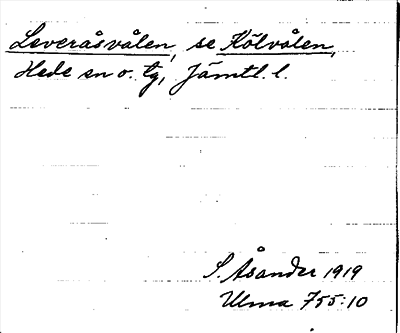 Leveråsvålen, se Kölvålen,
Hede sn o. tg, Jämtl. l.
S. Åsander 1919
Ulma 755:10